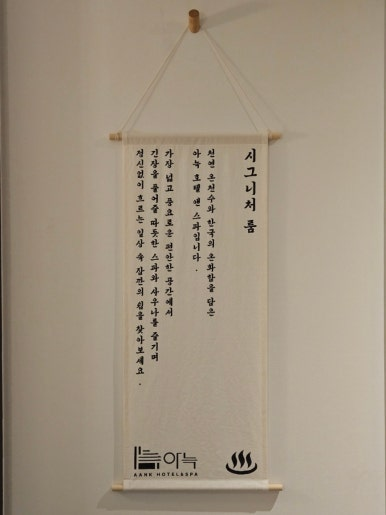 시그니처 룸
천연 온천수와 한국의 온화함을 담은
아늑 호텔 앤 스파입니다.
가장 넓고 풍요로운 편안한 공간에서
긴장을 풀어줄 따뜻한 스파와 사우나를 즐기며
정신없이 흐르는 일상 속 잠깐의 쉼을 찾아보세요.
아늑
AANK HOTEL&SPA